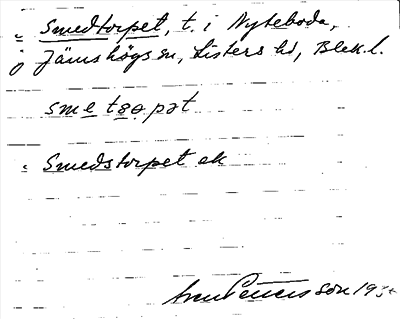 Smedtorpet, t. i Nyteboda,
Jämshögs sn, Listers hd, Blek. l.
sme tsɷ pət
Smedstorpet ek
Pettersson 19